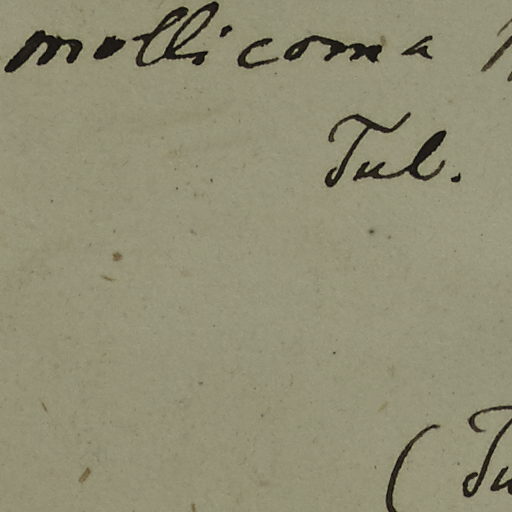 mollicoma
Tul.
(Tu